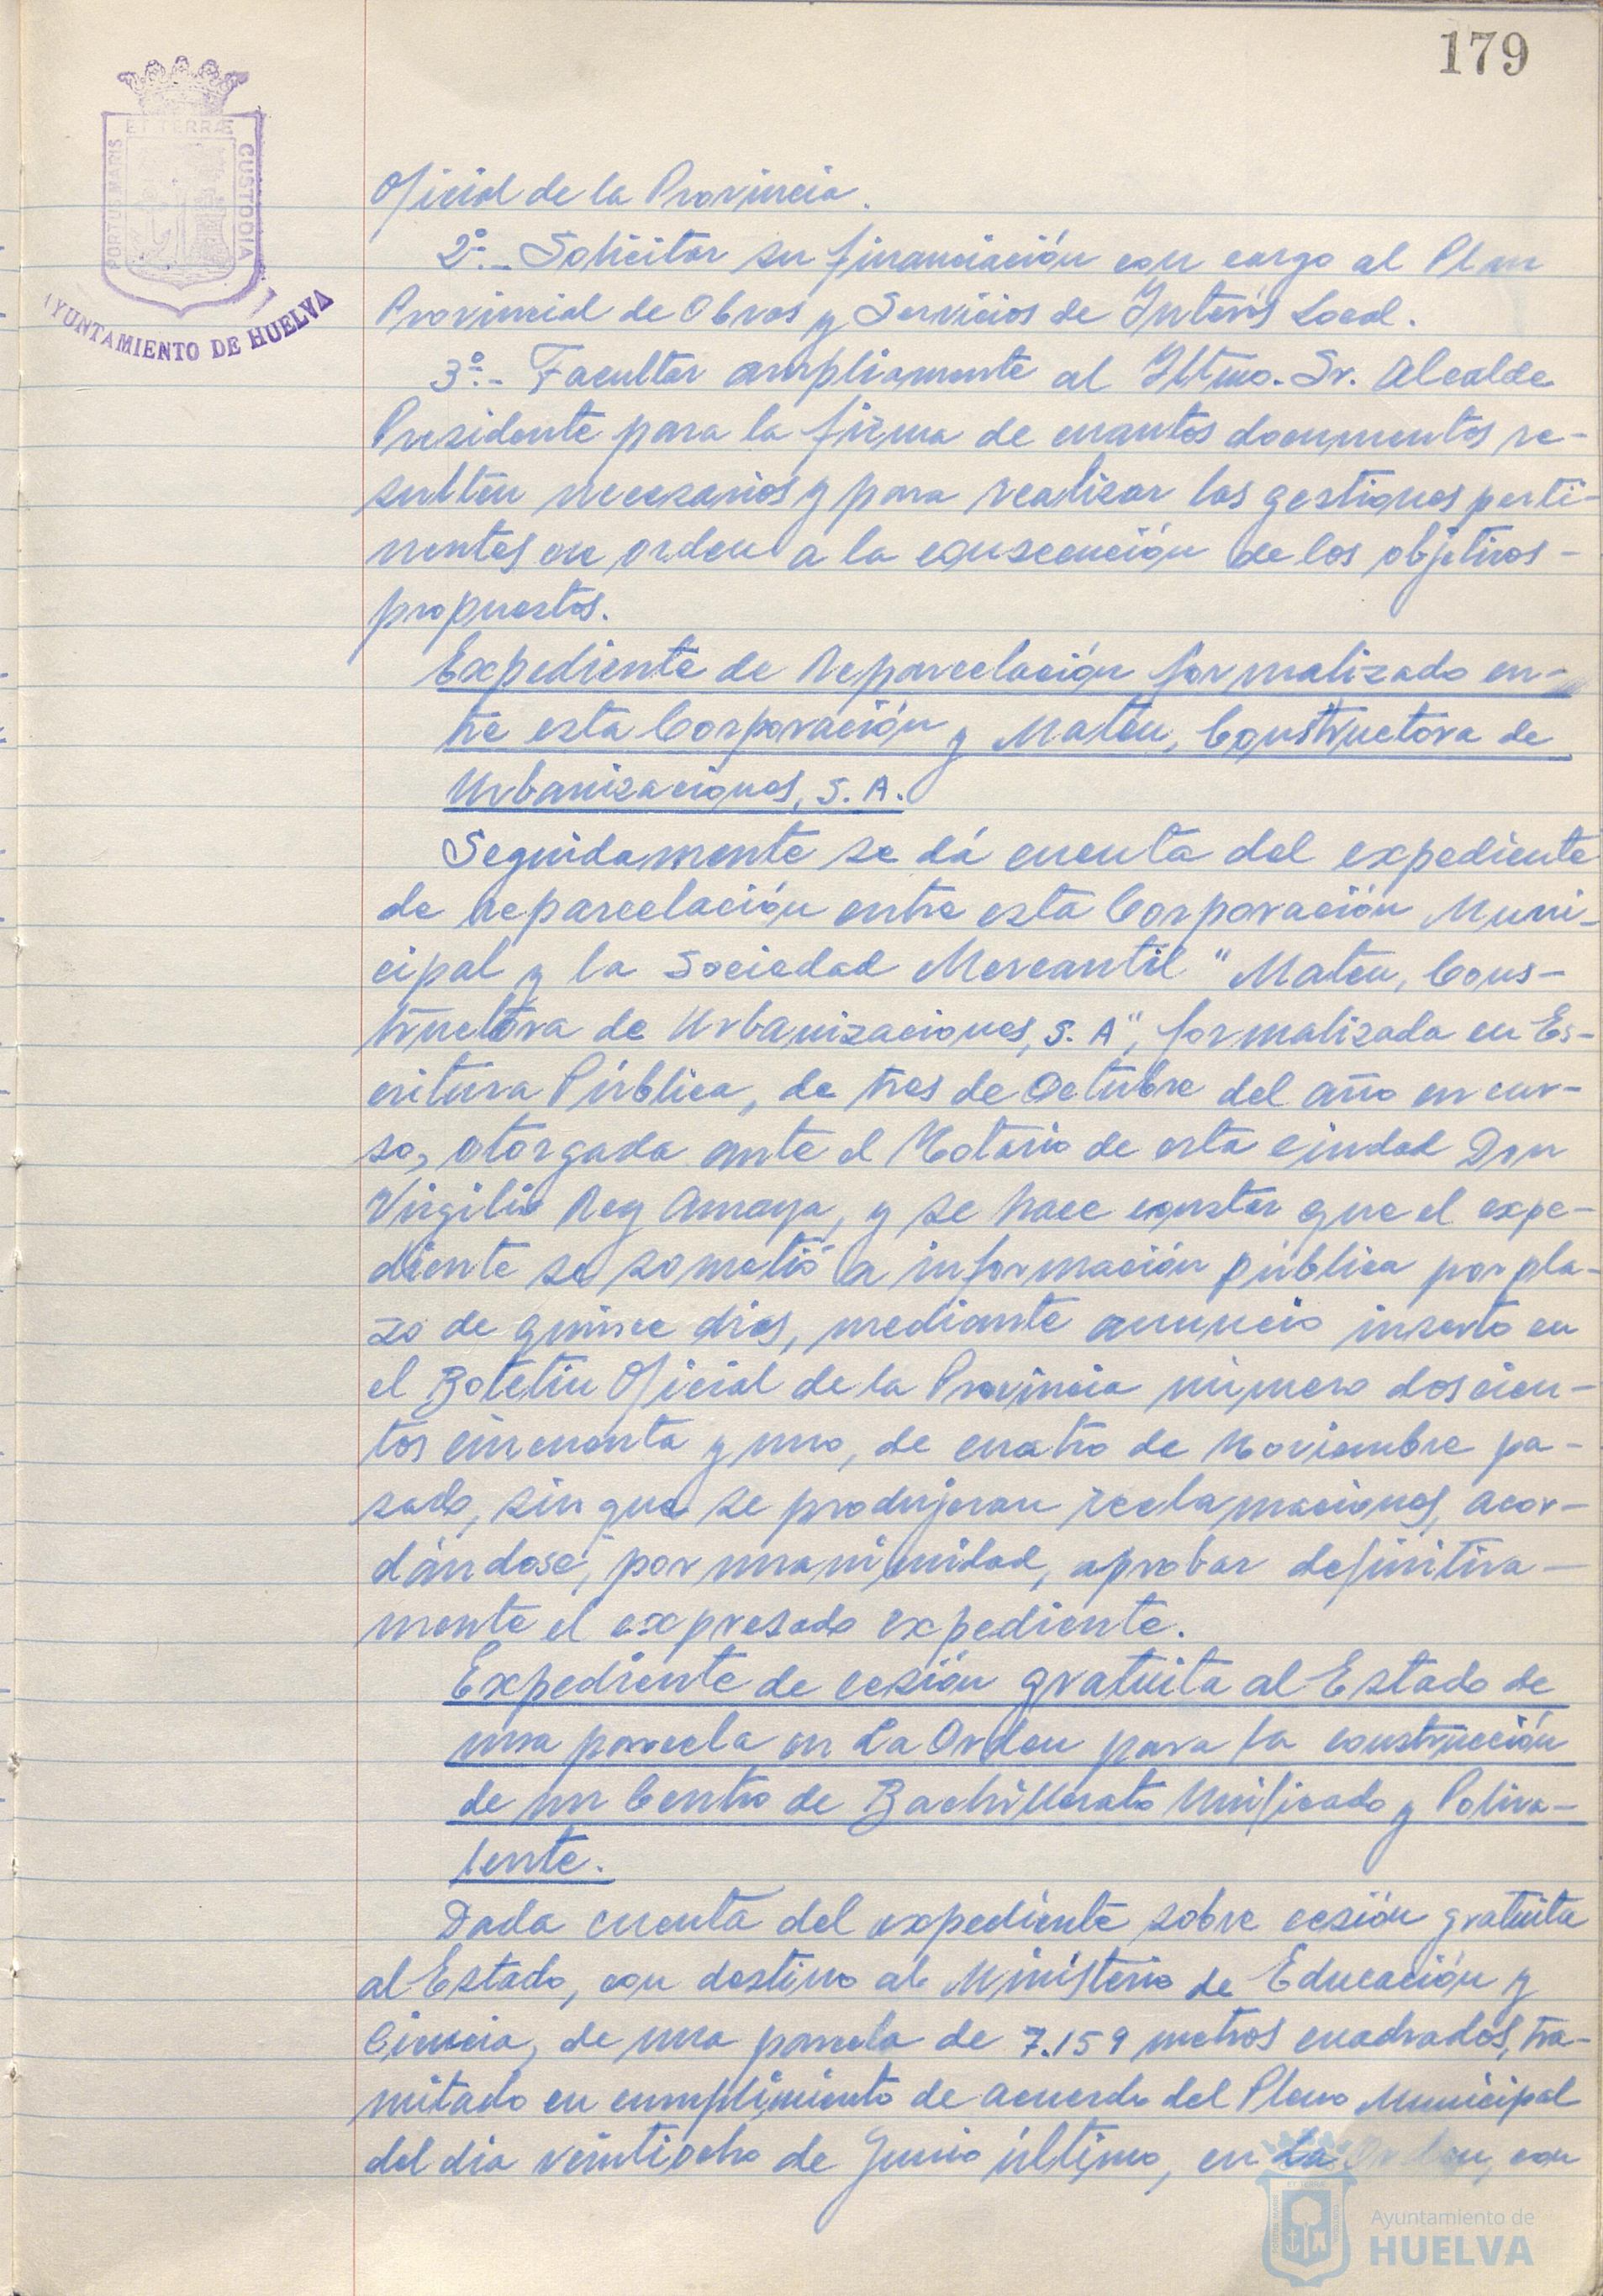 179
ET TERRÆ
PORTUS MARIS
CUSTODIA
AYUNTAMIENTO DE HUELVA
Oficial de la Provincia.
2º.- Solicitar su financiación con cargo al Plan
Provincial de Obras y Servicios de Interés Local.
3º.- Facultar ampliamente al Iltmo. Sr. Alcalde
Presidente para la firma de cuantos documentos re-
sulten necesarios y para realizar las gestiones perti-
nentes en orden a la consecución de los objetivos-
propuestos.
Expediente de Reparcelación formalizado en-
tre esta Corporación y Mateu, Constructora de
Urbanizaciones, S. A.
Seguidamente se dá cuenta del expediente
de reparcelación entre esta Corporación Muni-
cipal y la Sociedad Mercantil "Mateu, Cons-
tructora de Urbanizaciones, S. A", formalizada en Es-
critura Pública, de tres de Octubre del año en cur-
so, otorgada ante el Notario de esta ciudad Don
Virgilio Reg Amaya, y se hace constar que el expe-
diente se sometió a información pública por pla-
zo de quince dias, mediante anuncio inserto en
el Boletin Oficial de la Provincia número doscien-
tos cincuenta y uno, de cuatro de Noviembre pa-
sado, sin que se produjeran reclamaciones, acor-
dándose, por unanimidad, aprobar definitiva-
mente el expresado expediente.
Expediente de cesión gratuita al Estado de
una parcela en La Orden para la construcción
de un Centro de Bachillerato Unificado y Poliva-
lente.
Dada cuenta del expediente sobre cesión gratuita
al Estado, con destino al Ministerio de Educación y
Ciencia, de una parcela de 7.159 metros cuadrados, tra-
mitado en cumplimiento de acuerdo del Pleno Municipal
del dia veintiocho de Junio último, en La Orden, con
Ayuntamiento de
HUELVA